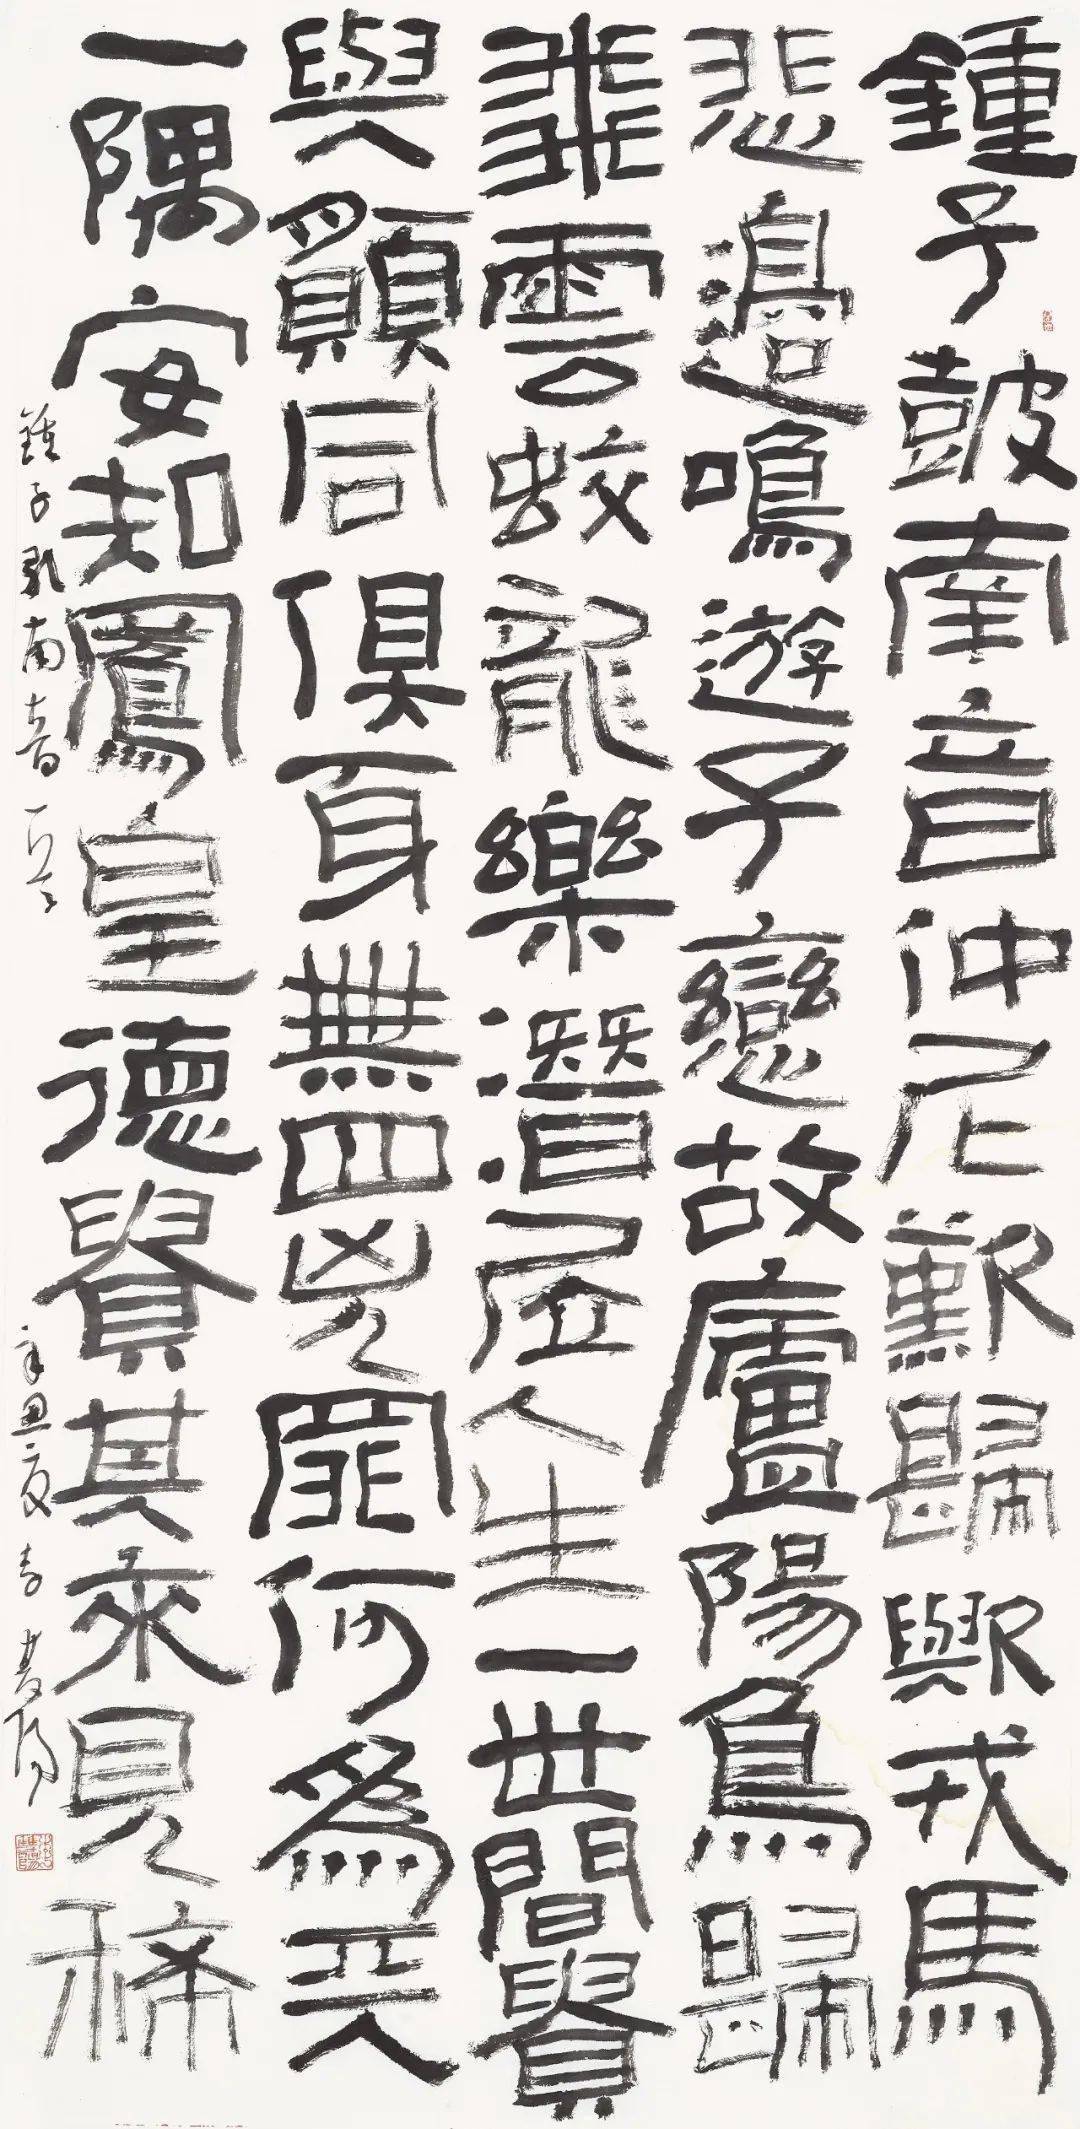 鍾子皷南音仲尼歎歸歟戎馬
悲邊鳴遊子戀故廬陽鳥歸
飛雲蛟龍樂潛居人生一世間貴
與願同俱身無四兇罪何為天
一隅安知鳳皇德貴其來見稀
鍾子皷南音一首 辛丑夏